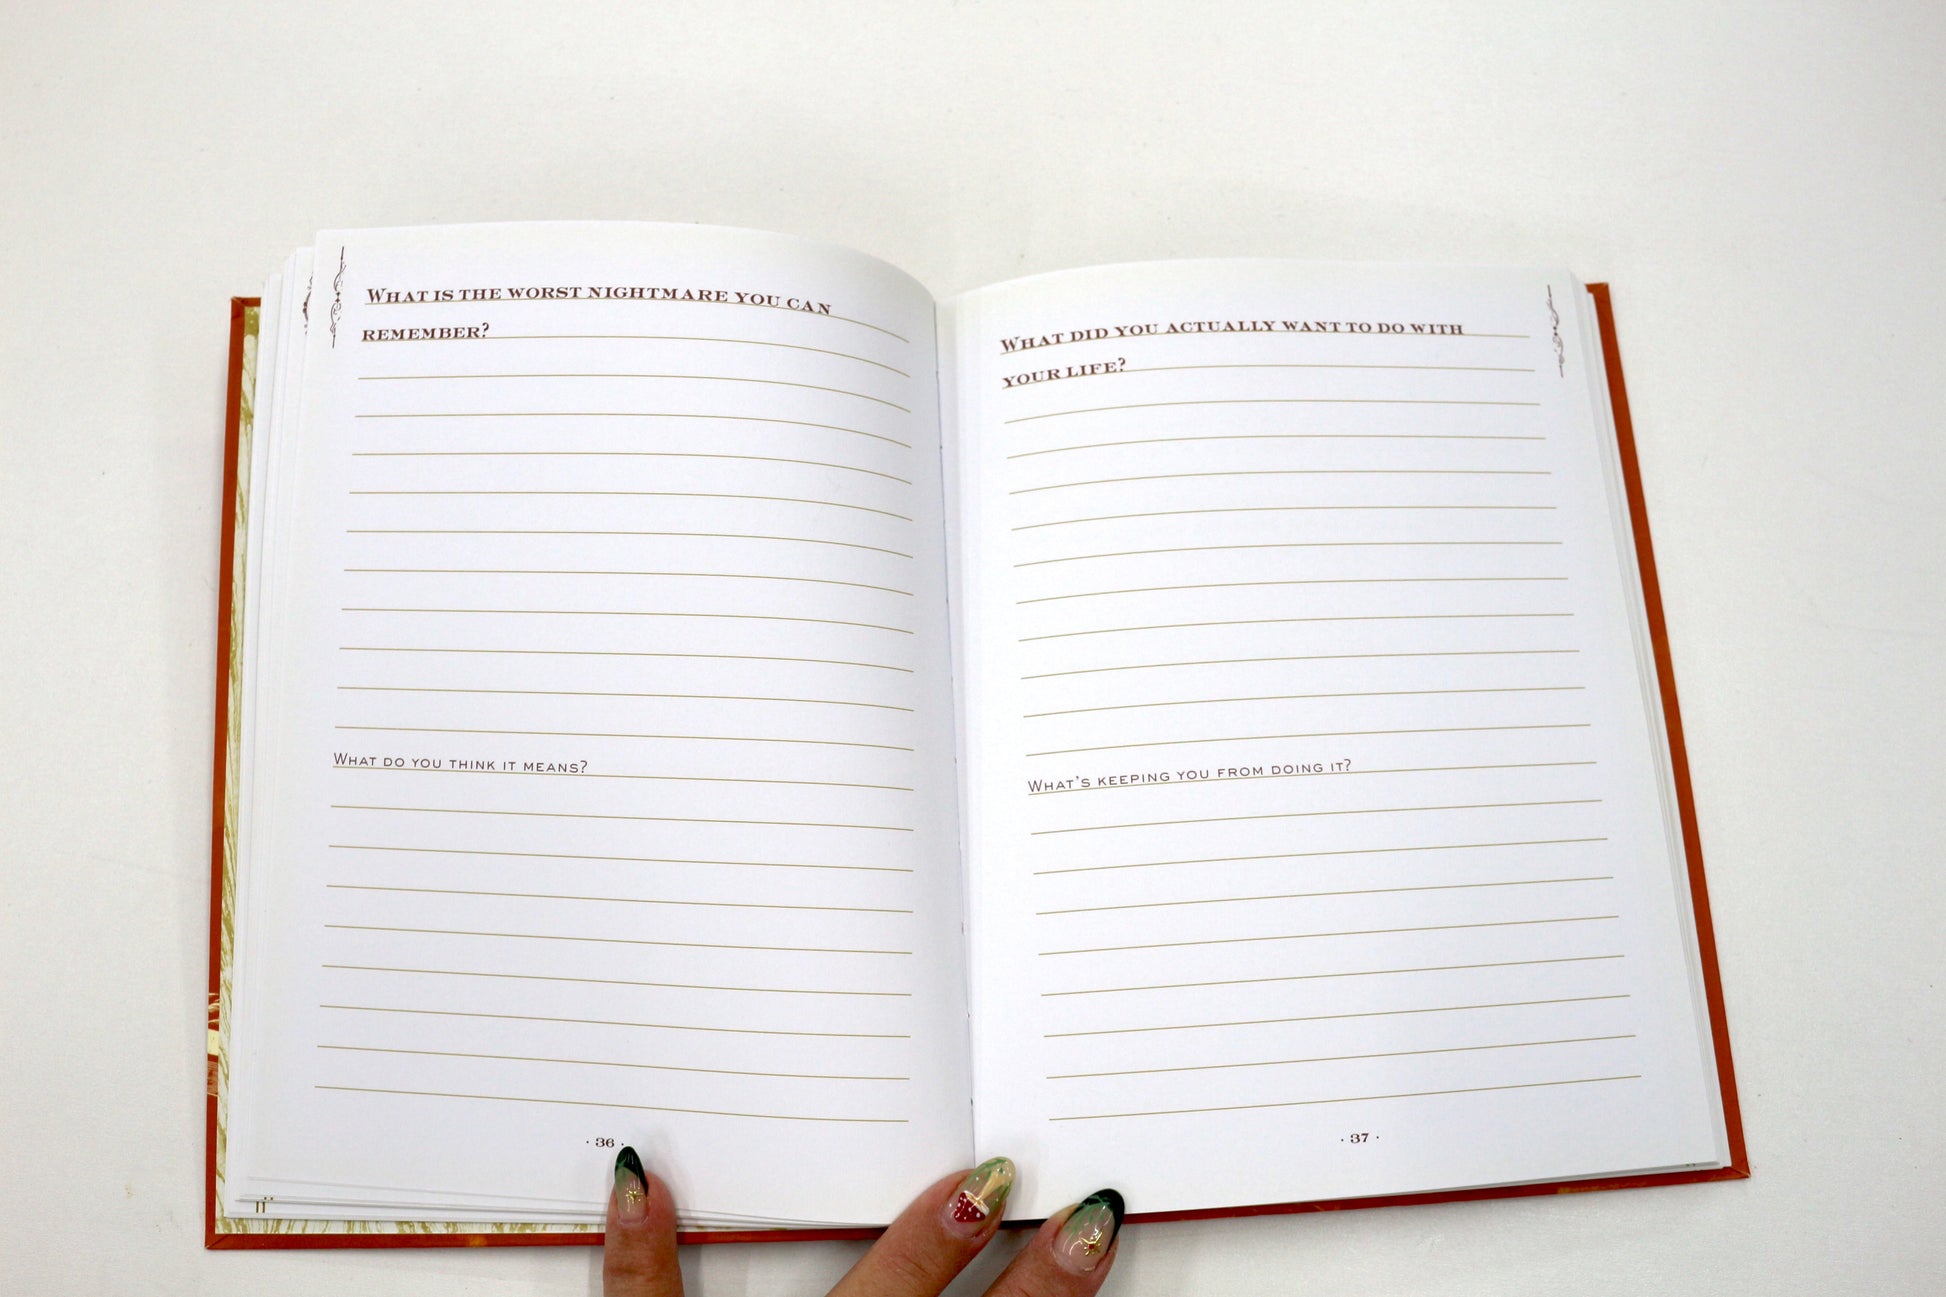 What is the worst nightmare you can
remember?
What do you think it means?
· 36 ·
What did you actually want to do with
your life?
What's keeping you from doing it?
· 37 ·